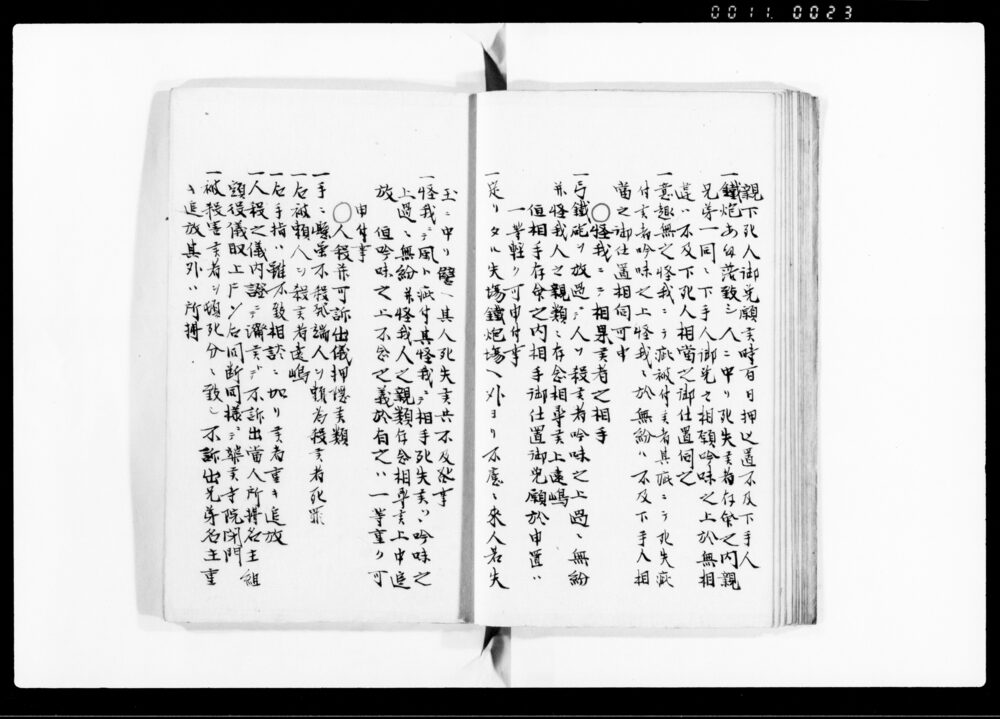 0011 0023
親下死人御免願黄時百日押込置不及下手人
一鐵炮あ落致シ人ニ中リ死失黄者存命之内親
兄弟一同ニ下手人御免之相願吟味之上於無相
違ハ不及下死人相當之御仕置伺之
一意趣無之怪我ニ而疵被付黄者其疵ニ而死失疵
付黄者吟味之上怪我ニ於無紛ハ不及下手人相
當之御仕置相伺可申
〇怪我ニ而相果黄者之相手
一弓鐵砲ヲ放過テ人ヲ殺黄者吟味之上過ニ無紛
并怪我人之親類ニ存念相尋黄上遠嶋
但相手存命之内相手御仕置御免願於申置ハ
一等軽ク可申付事
一定リタル矢場鐵炮場ヘ外ヨリ不慮ニ来人若失
玉ニ中リ譬ヘ其人死失黄共不及咎事
一怪我ニ而風ト疵付其怪我ニ而相手死失黄ハ吟味之
上過ニ無紛并怪我人之親類存念相尋黄上中追
放
但吟味之上不念之義於有之ハ一等重ク可
申付事
〇人殺并可訴出儀押隠黄類
一手ニ懸雖不殺邪端人ヲ頼為殺黄者死罪
一右被頼人ヲ殺黄者遠嶋
一右手指ハ雖不致相談ニ加リ黄者重キ追放
一人殺之儀内證ニ而濟黄ヲ不訴出當人所拂名主組
頭役儀取上戸〆右同断同様ニ築黄寺院閉門
一被殺害黄者ヲ頓死分ニ致シ不訴出兄弟名主重
キ追放其外ハ所拂